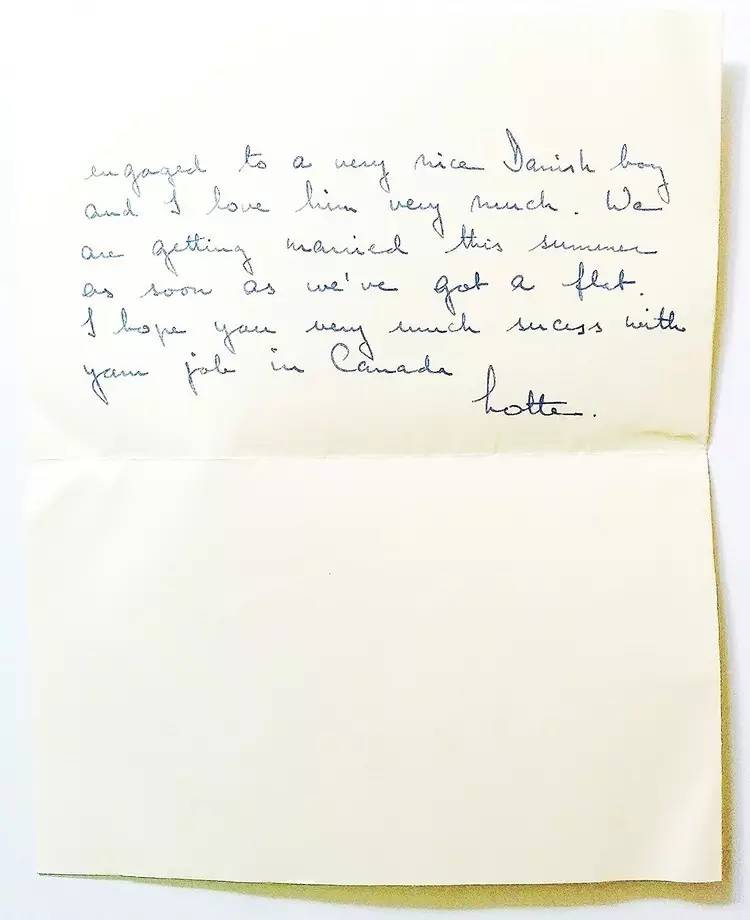 engaged to a very nice Danish boy
and I love him very much. We
are getting married this summer
as soon as we've got a flat.
I hope you very much sucess with
your job in Canada
Lotte.